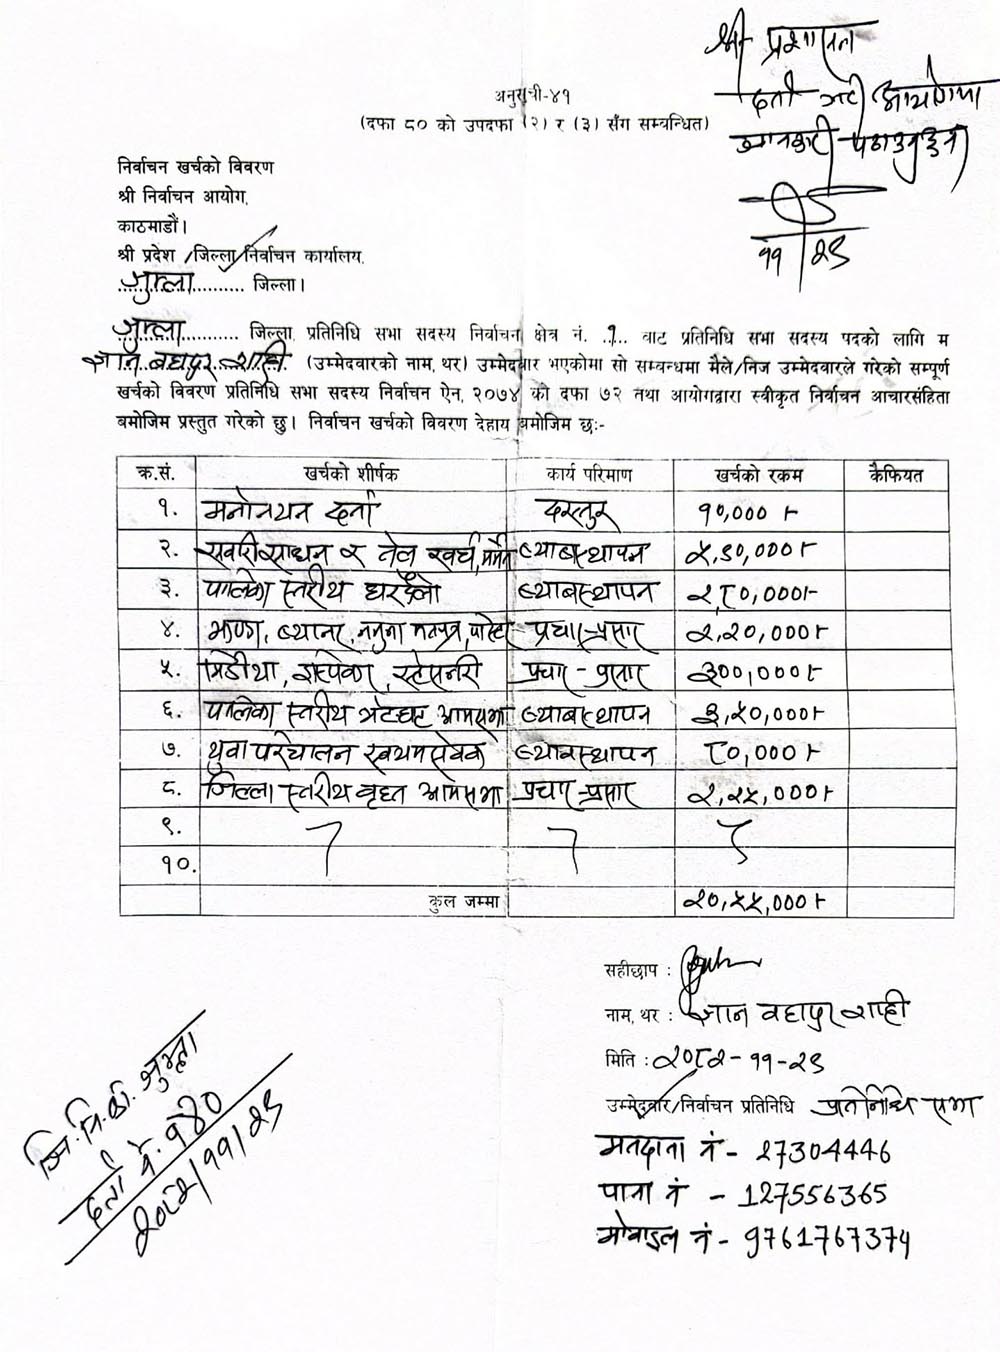 श्री प्रशासन
दर्ता गरी आयोगमा
जानकारी पठाउनुहुन
११/२९
अनुसूची-४१
(दफा ८० को उपदफा (२) र (३) सँग सम्बन्धित)
निर्वाचन खर्चको विवरण
श्री निर्वाचन आयोग,
काठमाडौं।
श्री प्रदेश /जिल्ला/निर्वाचन कार्यालय,
जुम्ला जिल्ला।
जुम्ला जिल्ला, प्रतिनिधि सभा सदस्य निर्वाचन क्षेत्र नं. १ बाट प्रतिनिधि सभा सदस्य पदको लागि म
ज्ञान बहादुर शाही (उम्मेदवारको नाम, थर) उम्मेदवार भएकोमा सो सम्बन्धमा मैले/निज उम्मेदवारले गरेको सम्पूर्ण
खर्चको विवरण प्रतिनिधि सभा सदस्य निर्वाचन ऐन, २०७४ को दफा ७२ तथा आयोगद्वारा स्वीकृत निर्वाचन आचारसंहिता
बमोजिम प्रस्तुत गरेको छु। निर्वाचन खर्चको विवरण देहाय बमोजिम छः-
क्र.सं. खर्चको शीर्षक कार्य परिमाण खर्चको रकम कैफियत
१. मनोनयन दर्ता दस्तुर १०,०००।-
२. सवारी साधन र तेल खर्च, मर्मत ब्याबस्थापन ५,९०,०००।-
३. पालिका स्तरीय घरदैलो ब्याबस्थापन २,८०,०००।-
४. झण्डा, ब्यानर, नमुना मतपत्र, पोस्टर प्रचार-प्रसार २,२०,०००।-
५. मिडीया, स्टेसनरी प्रचार-प्रसार ३००,०००।-
६. पालिका स्तरीय भेटघाट आमसभा ब्याबस्थापन ३,५०,०००।-
७. युवा परिचालन स्वयमसेवक ब्याबस्थापन ८०,०००।-
८. जिल्ला स्तरीय बृहत आमसभा प्रचार-प्रसार २,२५,०००।-
९.
१०.
कुल जम्मा २०,५५,०००।-
सहीछाप :
नाम, थर : ज्ञान बहादुर शाही
मिति : २०८२-११-२९
उम्मेदवार/निर्वाचन प्रतिनिधि प्रतिनिधि सभा
मतदाता नं - 27304446
पाना नं - 127556365
मोबाइल नं - 9761767374
जि.नि.का. जुम्ला
दर्ता नं. १४०
२०८२/११/२९